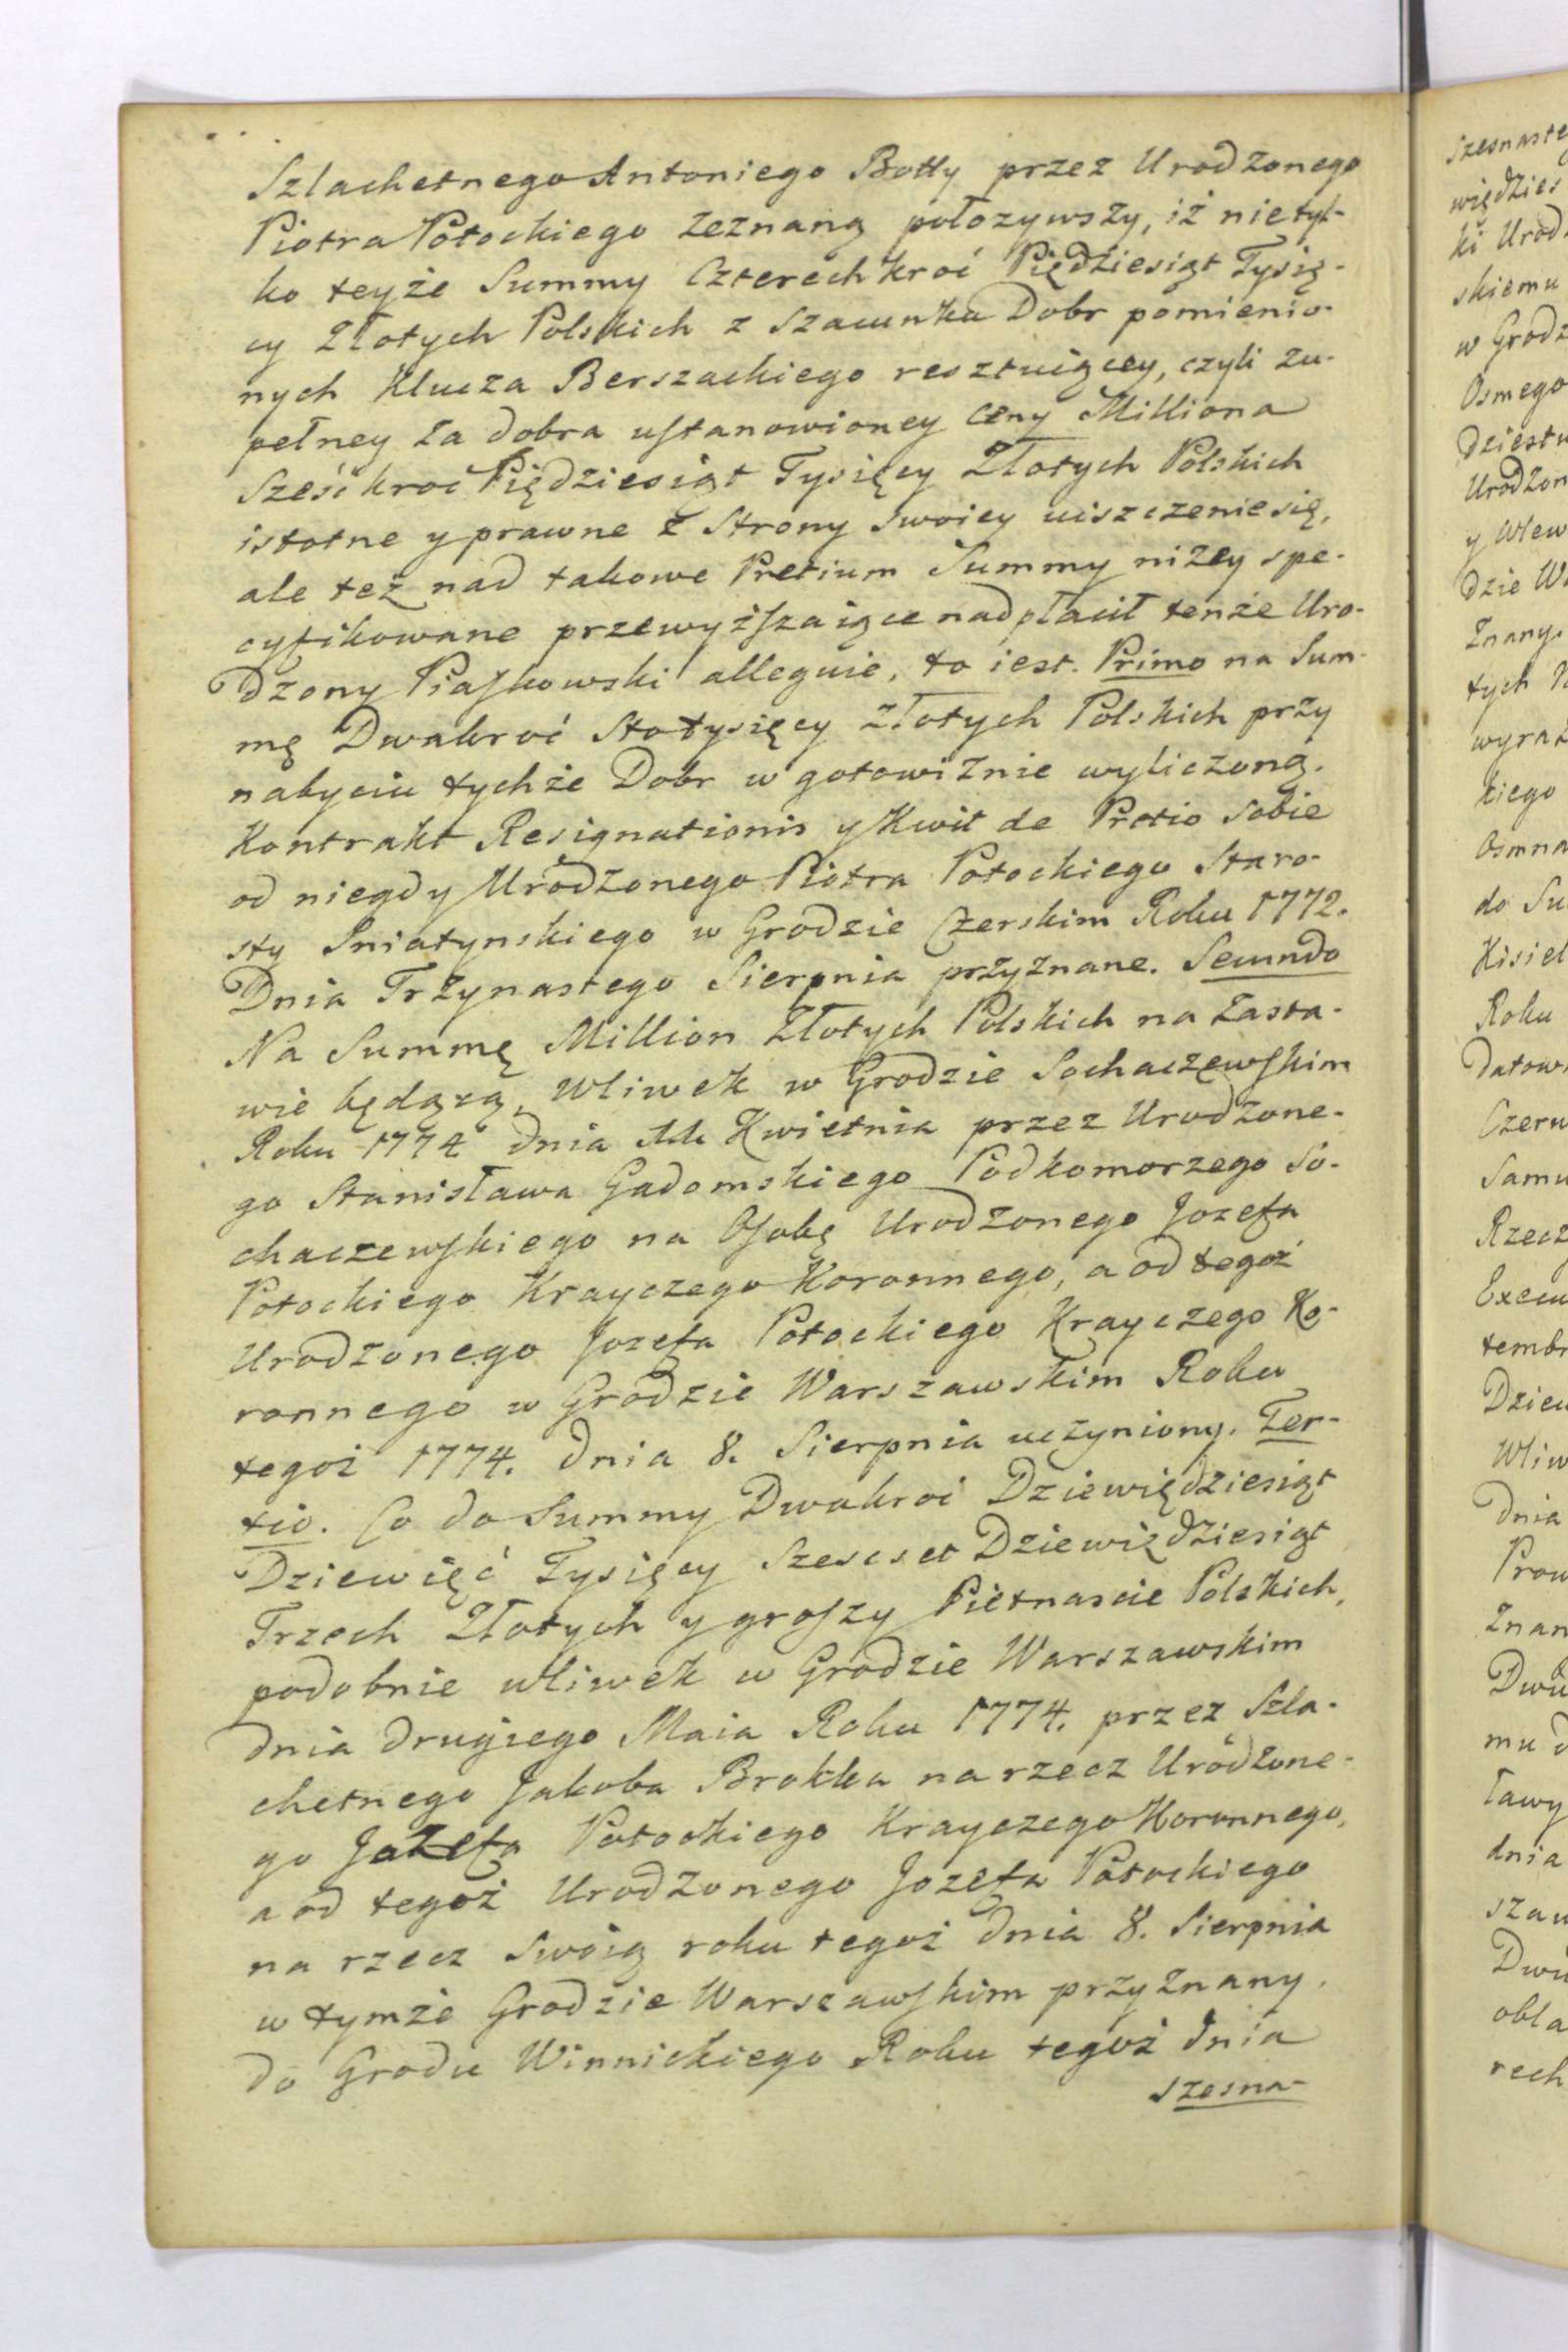 Szlachetnego Antoniego Botty przez Urodzonego
Piotra Potockiego zeznaną położywszy, iż nietyl-
ko teyże Summy Czterechkroć Pięдziesiąt Tysię-
cy Złotych Polskich z Szacunku Dobr pomienio-
nych Klucza Berszackiego resztuiącey, czyli zu-
pełney za dobra ustanowioney ceny Milliona
Sześćkroć Pięдziesiąt Tysięcy Złotych Polskich
istotne y prawne z Strony swoiey uiszczenie się,
ale też nad takowe Pretium Summy niżey spe-
cyfikowane przewyższaiące nadpłacił tenże Uro-
dzony Piaskowski alleguie, to iest. Primo na Sum-
mę Dwakroć Stotysięcy złotych Polskich przy
nabyciu tychże Dobr w gotowiźnie wyliczoną.
Kontrakt Resignationis y Kwit de Pretio sobie
od niegdy Urodzonego Piotra Potockiego Staro-
sty Sniatynskiego w Grodzie Czerskim Roku 1772.
Dnia Trzynastego Sierpnia przyznane. Secundo
Na Summę Million Złotych Polskich na zasta-
wie będącą, Wliwek w Grodzie Sochaczewskim
Roku 1774 dnia 11. Kwietnia przez Urodzone-
go Stanisława Gadomskiego Podkomorzego So-
chaczewskiego na Osobę Urodzonego Jozefa
Potockiego Krayczego Koronnego, a od tegoż
Urodzonego Jozefa Potockiego Krayczego Ko-
ronnego w Grodzie Warszawskim Roku
tegoż 1774. dnia 8. Sierpnia uczyniony. Ter-
tio. Co do Summy Dwakroć Dziewięдziesiąt
Dziewięć Tysięcy Szescset Dziewięдziesiąt
Trzech Złotych y groszy Piętnascie Polskich,
podobnie wliwek w Grodzie Warszawskim
dnia drugiego Maia Roku 1774. przez Szla-
chetnego Jakoba Brokka na rzecz Urodzone-
go Jozefa Potockiego Krayczego Koronnego,
a od tegoż Urodzonego Jozefa Potockiego
na rzecz swoią roku tegoż dnia 8. Sierpnia
w tymże Grodzie Warszawskim przyznany.
do Grodu Winnickiego Roku tegoż dnia
szesna-